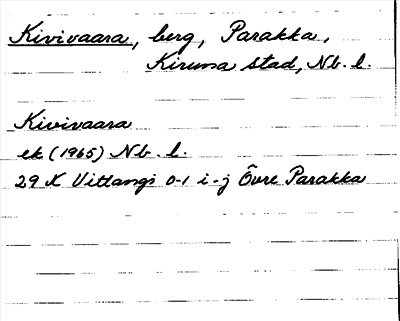 Kivivaara, berg, Parakka,
Kiruna stad, Nb. l.
Kivivaara
ek (1965) Nb. l.
29 K Vittangi 0-1 i-j Övre Parakka